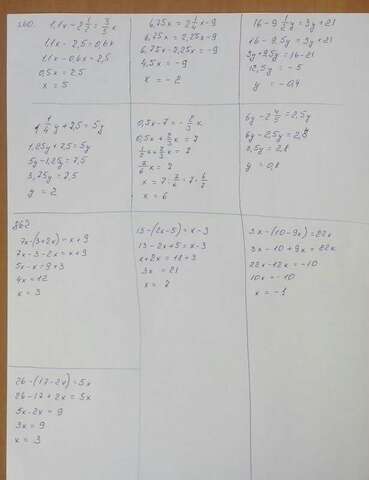 860.
1,1x - 2 1/2 = 3/5 x
1,1x - 2,5 = 0,6x
1,1x - 0,6x = 2,5
0,5x = 2,5
x = 5
6,75x = 2 1/4 x - 9
6,75x = 2,25x - 9
6,75x - 2,25x = -9
4,5x = -9
x = -2
16 - 9 1/2 y = 3y + 21
16 - 9,5y = 3y + 21
3y + 9,5y = 16 - 21
12,5y = -5
y = -0,4
1 1/4 y + 7,5 = 5y
1,25y + 7,5 = 5y
5y - 1,25y = 7,5
3,75y = 7,5
y = 2
0,5x - 7 = - 2/3 x
0,5x + 2/3 x = 7
1/2 x + 2/3 x = 7
7/6 x = 7
x = 7 : 7/6 = 7 · 6/7
x = 6
6y - 2 4/5 = 2,5y
6y - 2,5y = 2,8
3,5y = 2,8
y = 0,8
862
7x - (3 + 2x) = x + 9
7x - 3 - 2x = x + 9
5x - x = 9 + 3
4x = 12
x = 3
13 - (2x - 5) = x - 3
13 - 2x + 5 = x - 3
x + 2x = 18 + 3
3x = 21
x = 7
3x - (10 - 9x) = 22x
3x - 10 + 9x = 22x
22x - 12x = -10
10x = -10
x = -1
26 - (17 - 2x) = 5x
26 - 17 + 2x = 5x
5x - 2x = 9
3x = 9
x = 3